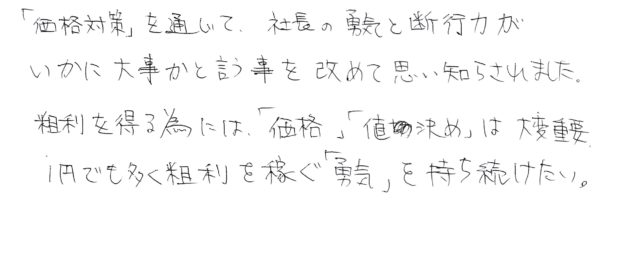 「価格対策」を通じて、社長の勇気と断行力が
いかに大事かと言う事を改めて思い知らされました。
粗利を得る為には、「価格」「値決め」は大変重要、
1円でも多く粗利を稼ぐ「勇気」を持ち続けたい。